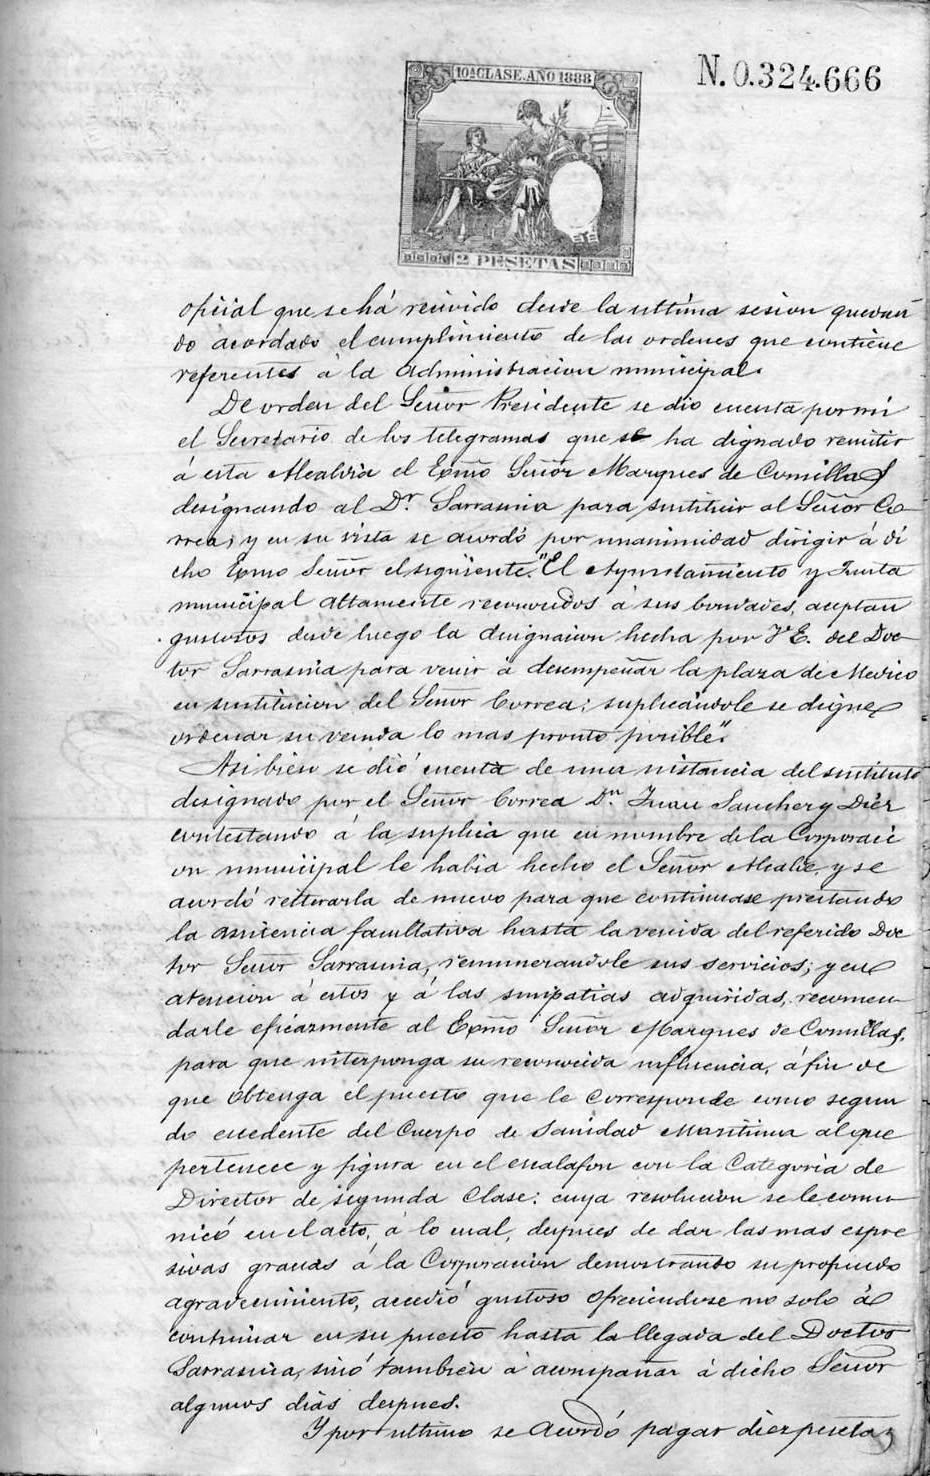 N. 0.324.666
10ª CLASE. AÑO 1888
2 PESETAS
oficial que se há recivido desde la ultima sesion quedan
do acordado el cumplimiento de las ordenes que contiene
referentes á la administracion municipal.
De orden del Señor Presidente se dió cuenta por mi
el Secretario de los telegramas que se ha dignado remitir
á esta Alcaldia el Exmo Señor Marques de Comillas
designando al Dr. Sarrasina para sustituir al Señor Co-
rrea; y en su vista se acordó por unanimidad dirigir á di
cho Exmo Señor el siguiente. "El Ayuntamiento y Junta
municipal altamente reconocidos á sus bondades, aceptan
gustosos desde luego la designacion hecha por V.E. del Doc-
tor Sarrasina para venir á desempeñar la plaza de Medico
en sustitucion del Señor Correa; suplicándole se digne
ordenar su venida lo mas pronto posible".
Asi bien se dió cuenta de una instancia del sustituto
designado por el Señor Correa Dn. Juan Sanchez y Diez
contestando á la suplica que en nombre de la Corporaci
on municipal le habia hecho el Señor Alcalde, y se
acordó reiterarla de nuevo para que continuase prestando
la asistencia facultativa hasta la venida del referido Doc
tor Señor Sarrasina, remunerandole sus servicios; y en
atencion á estos y á las simpatias adquiridas, recomen-
darle eficazmente al Exmo Señor Marques de Comillas,
para que interponga su reconocida influencia, á fin de
que obtenga el puesto que le corresponde como segun
do escedente del Cuerpo de Sanidad Maritima al que
pertenece y figura en el escalafon con la Categoria de
Director de segunda clase: cuya resolucion se le comu-
nicó en el acto, á lo cual, despues de dar las mas espre
sivas gracias á la Corporacion demostrando su profundo
agradecimiento, accedió gustoso ofreciendose no solo á
continuar en su puesto hasta la llegada del Doctor
Sarrasina, sinó tambien á acompañar á dicho Señor
algunos dias despues.
Y por ultimo se acordó pagar diez pesetas